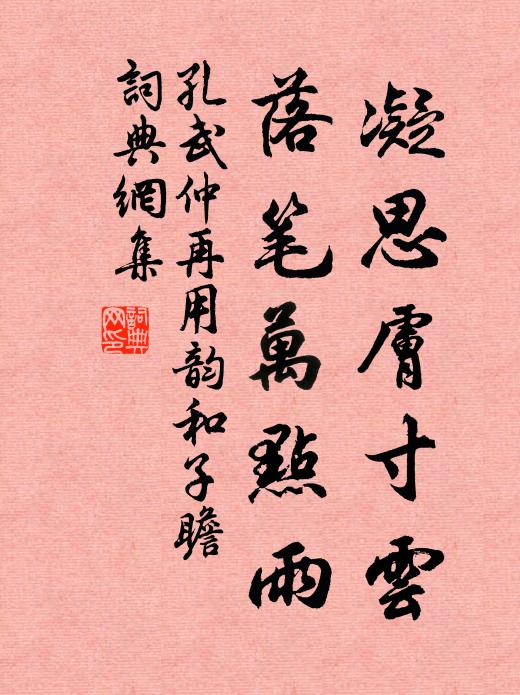 凝思膚寸雲
落笔萬點雨
孔武仲再用韵和子瞻
詞典網集
詞典網印